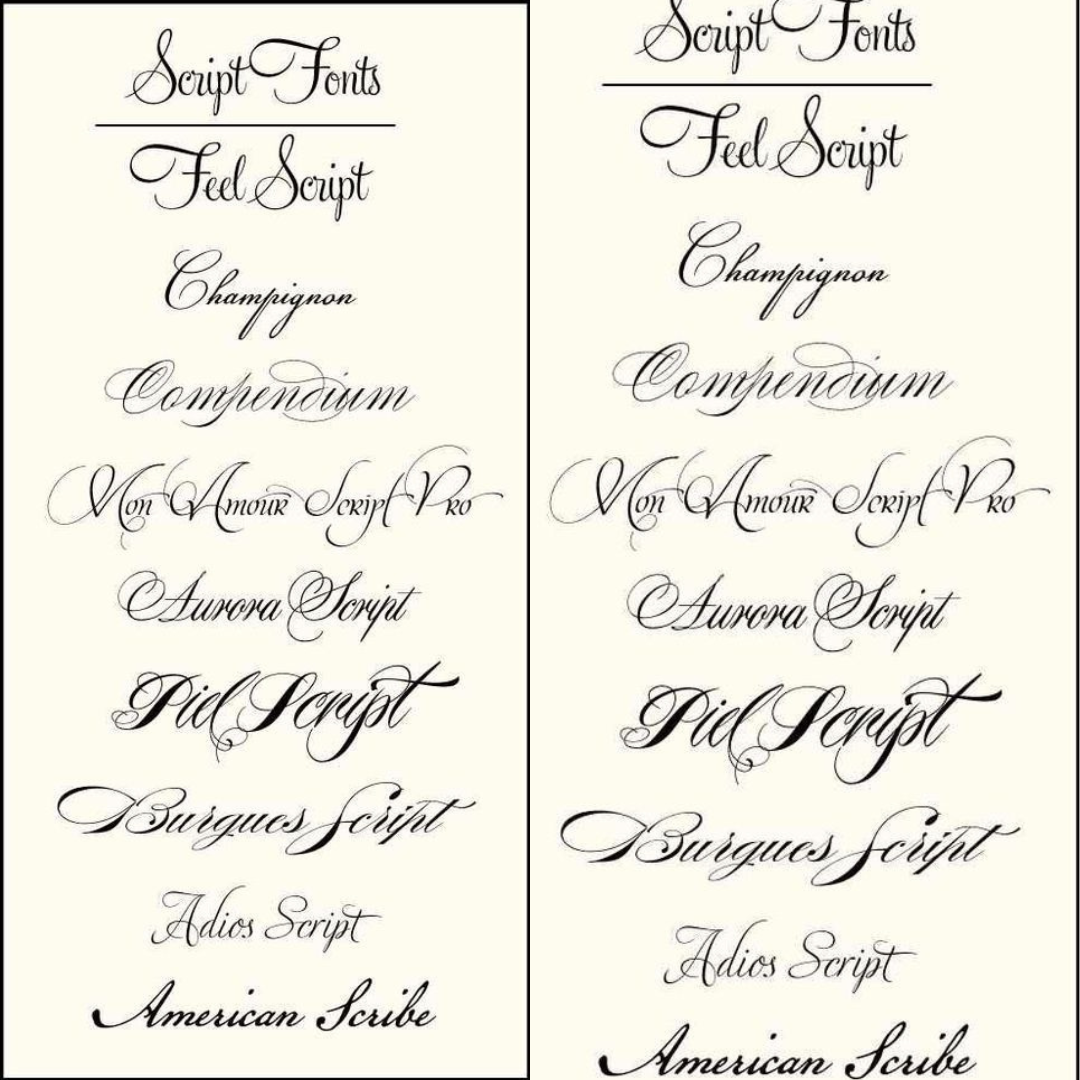 Script Fonts
Feel Script
Champignon
Compendium
Mon Amour Script Pro
Aurora Script
Piel Script
Burgues Script
Adios Script
American Scribe
Script Fonts
Feel Script
Champignon
Compendium
Mon Amour Script Pro
Aurora Script
Piel Script
Burgues Script
Adios Script
American Scribe